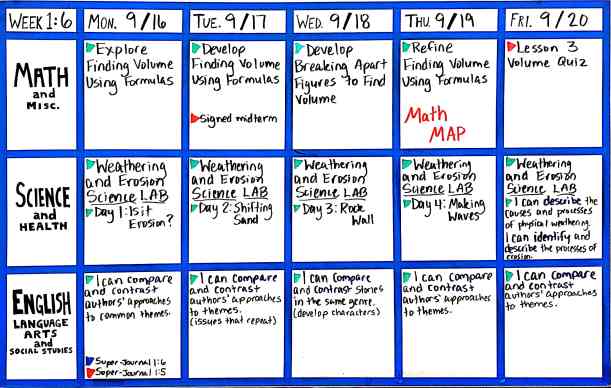 WEEK 1:6
MON. 9/16
TUE. 9/17
WED. 9/18
THU. 9/19
FRI. 9/20
MATH
and
MISC.
Explore
Finding Volume
Using Formulas
Develop
Finding Volume
Using Formulas
Signed midterm
Develop
Breaking Apart
Figures to Find
Volume
Refine
Finding Volume
Using Formulas
Math
MAP
Lesson 3
Volume Quiz
SCIENCE
and
HEALTH
Weathering
and Erosion
Science LAB
Day 1: Is it
Erosion?
Weathering
and Erosion
Science LAB
Day 2: Shifting
Sand
Weathering
and Erosion
Science LAB
Day 3: Rock
Wall
Weathering
and Erosion
Science LAB
Day 4: Making
Waves
Weathering
and Erosion
Science LAB
I can describe the
causes and processes
of physical weathering.
I can identify and
describe the processes of
erosion.
ENGLISH
LANGUAGE
ARTS
and
SOCIAL STUDIES
I can compare
and contrast
authors' approaches
to common themes.
Super-Journal 1:6
Super-Journal 1:5
I can compare
and contrast
authors' approaches
to themes.
(issues that repeat)
I can compare
and contrast stories
in the same genre.
(develop characters)
I can compare
and contrast
authors' approaches
to themes.
I can compare
and contrast
authors' approaches
to themes.